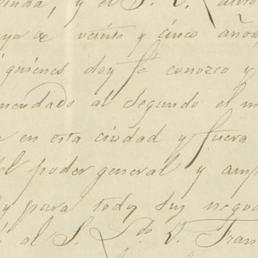 y el S. D.
de veinte y cinco años
quienes doy fé conozco y
mendado al segundo el m
en esta ciudad y fuera
el poder general y amp
y para todos sus nego
al S. Ldo D. Fran